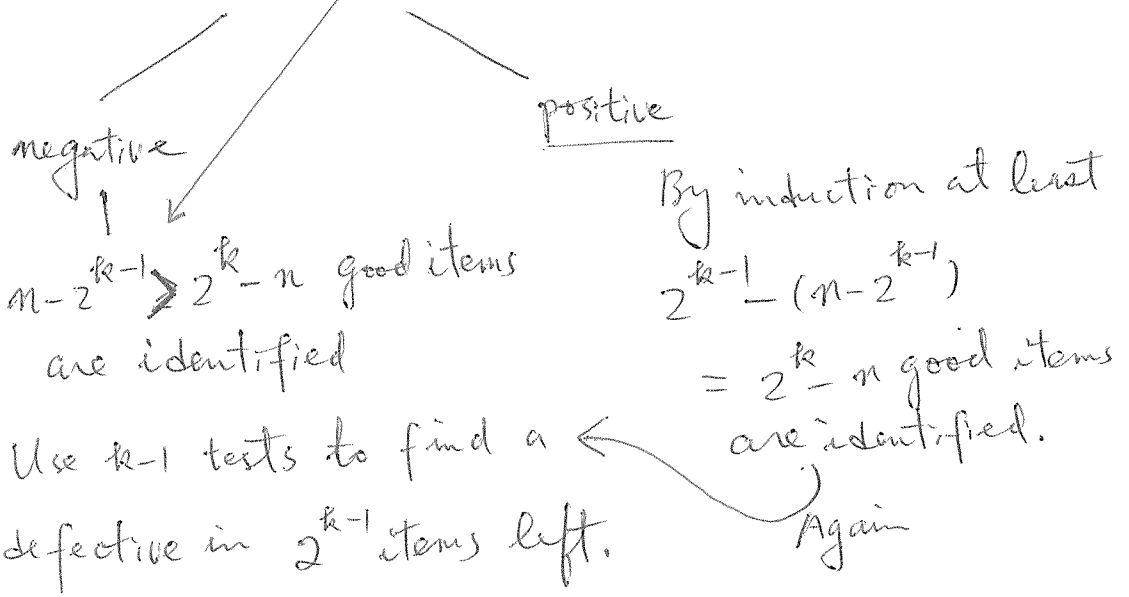 negative
n-2^{k-1} > 2^k - n good items
are identified
Use k-1 tests to find a
defective in 2^{k-1} items left.
positive
By induction at least
2^{k-1} - (n-2^{k-1})
= 2^k - n good items
are identified.
Again